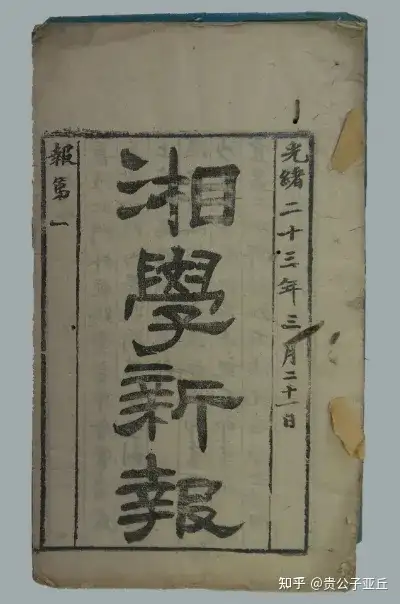 光緒二十三年三月二十一日
湘學新報
報第一
知乎 @贵公子亚丘